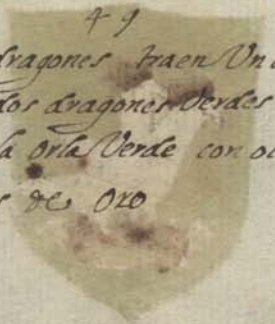 49
dragones traen Un
dos dragones Verdes
la orla Verde con
de Oro